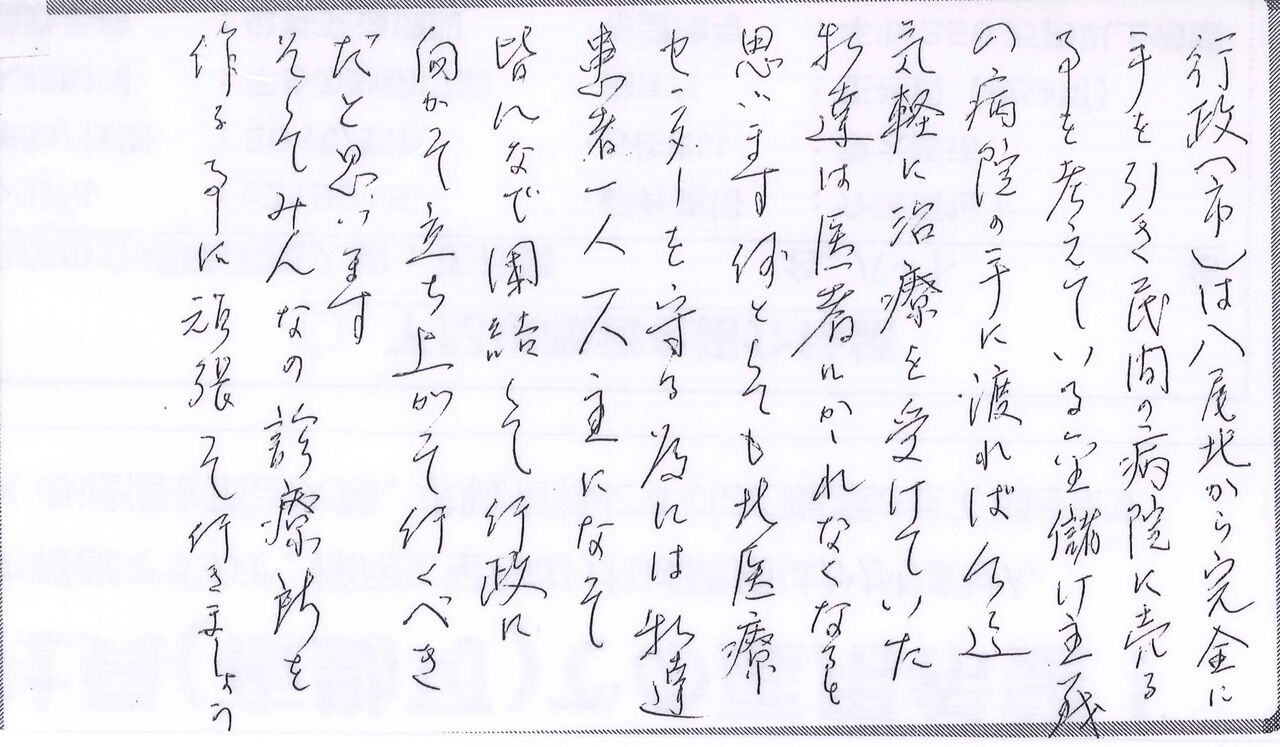 行政(市)は八尾北から完全に
手を引き民間の病院に売る
事を考えている金儲け主義
の病院の手に渡れば今迄
気軽に治療を受けていた
私達は医者にかゝれなくなると
思います何としても北医療
センターを守る為には私達
患者一人一人主になって
皆んなで団結して行政に
向かって立ち上がって行くべき
だと思います
そしてみんなの診療所を
作る事に頑張って行きましょう